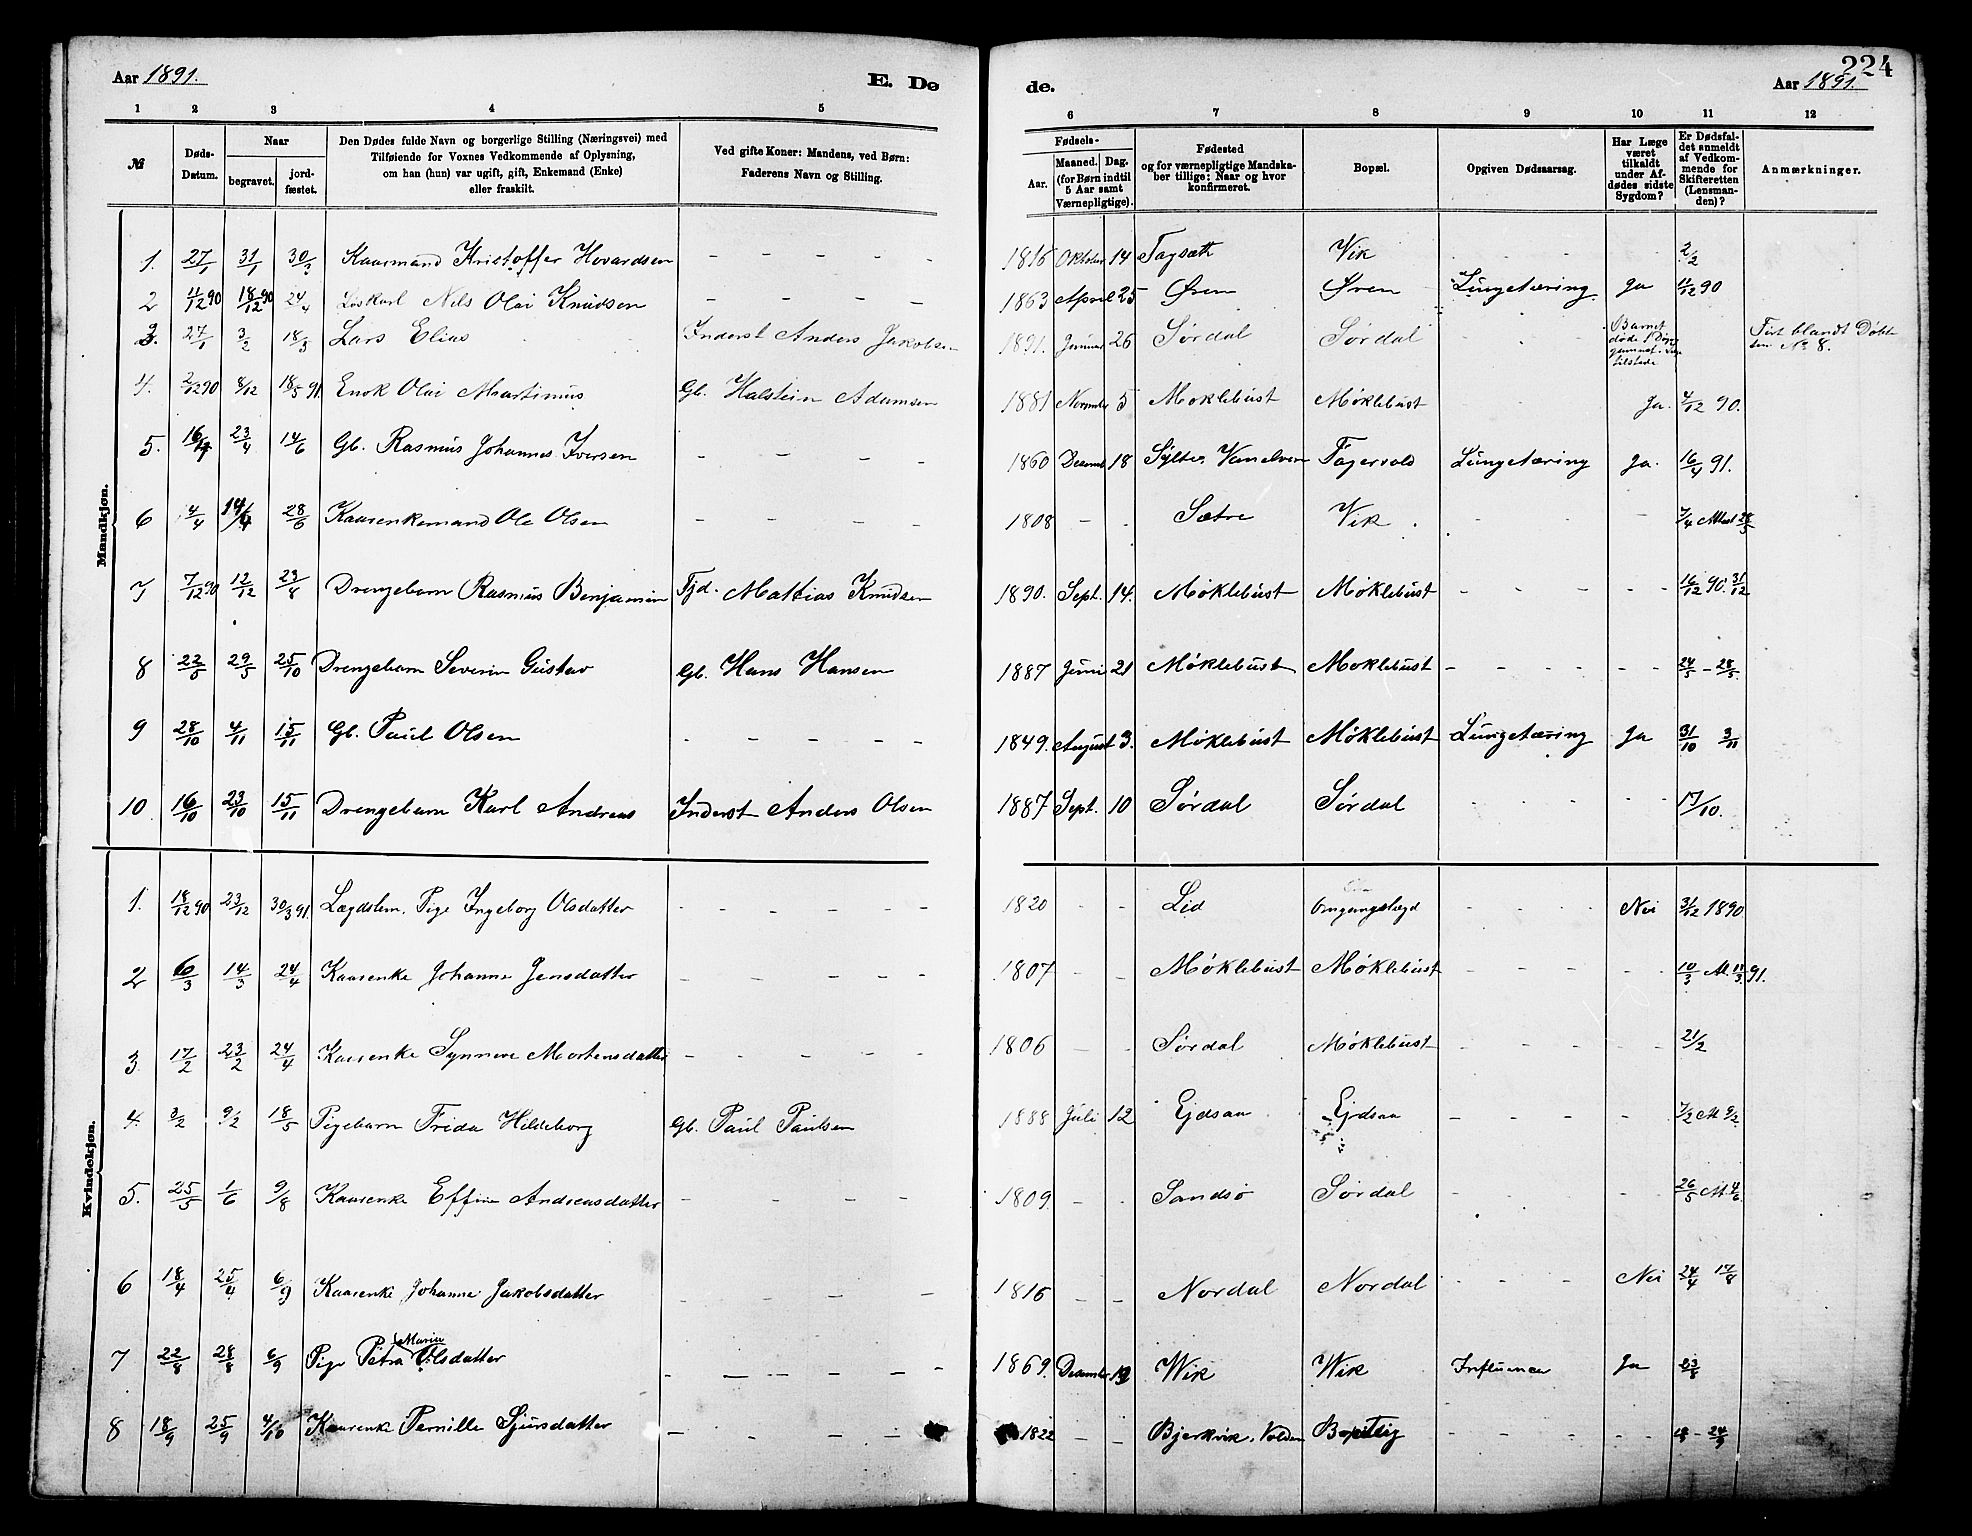 224
Aar 1891. E. Dø de. Aar 1891.
1 2 3 4 5 6 7 8 9 10 11 12
№ Døds-Datum. Naar begravet. jord-fæstet. Den Dødes fulde Navn og borgerlige Stilling (Næringsvei) med Tilføiende for Voxnes Vedkommende af Oplysning, om han (hun) var ugift, gift, Enkemand (Enke) eller fraskilt. Ved gifte Koner: Mandens, ved Børn: Faderens Navn og Stilling. Fødsels- Aar. Maaned. Dag. (for Børn indtil 5 Aar samt Værnepligtige). Fødested og for værnepligtige Mandska-ber tillige: Naar og hvor konfirmeret. Bopæl. Opgiven Dødsaarsag. Har Læge været tilkaldt under Af-dødes sidste Sygdom? Er Dødsfal-det anmeldt af Vedkom-mende for Skifteretten (Lensman-den)? Anmærkninger.
Mandkjøn.
1. 27/1 31/1 30/3 Kaarmand Kristoffer Hovardsen – – – – – 1816 Oktober 14 Tagsæth Vik 2/2
2 11/12 90 18/12 90 24/4 Løskarl Nils Olai Knudsen – – – – – 1863 April 25 Øren Øren Lungetæring. Ja 11/12 90
3. 27/1 3/2 18/3 Lars Elias Inderst Anders Jakobsen 1891. Januar 26 Sørdal Sørdal Barnet døde 1 Døgn gammel. tilstede Født blandt Døbte No 8.
4. 2/12 90 8/12 18/5 91 Enok Olai Martinus Gb. Halstein Adamsen 1881 Novembr 5 Moklebust Møklebust Ja. 4/12 90.
5. 16/4 23/4 14/6 Gb. Rasmus Johannes Iversen – – – – 1860 Desemb 18 Sylte, Vanelven Fagervold Lungetæring Ja. 16/4 91.
6 4/4 14/4 28/6 Kaarenkemand Ole Olsen – – – – 1808 – Sætre Vik 7/4 Attest 28/5
7 7/12 90 12/12 23/8 Drengebarn Rasmus Benjamin Fjd. Mattias Knudsen 1890. Sept. 14. Møklebust Møklebust – – – – – 16/12 90. 31/12
8 22/5 29/5 25/10 Drengebarn Severin Gustav Gb. Hans Hansen 1887 Juni 21 Møklebust Moklebust – – – – – 24/5 – 28/5.
9 28/10 4/11 15/11 Gb. Paul Olsen – – – – – 1849. August 3. Møklebust Møklebust Lungetæring Ja 31/10 3/11
10 16/10 23/10 15/11 Drengebarn Karl Andreas Inderst Anders Olsen 1887 Sept. 10 Sørdal Sørdal 17/10.
Kvindekjøn.
1. 18/12 90 23/12 30/3 91. Lægdslem. Pige Ingeborg Olsdatter – – – – – 1820 – – Lid Omgangslægd Nei 31/12 1890
2 6/3 14/3 24/4 Kaarenke Johanne Jensdatter – – – – – 1807 – – Møklebust Møklebust 10/3 M. 11/3 91.
3 17/2 23/2 24/4 Kaarenke Synneve Mortensdatter – – – – – 1806 – – Sørdal Møklebust 21/2
4. 3/2 9/2 18/5 Pigebarn Frida Hildeborg Gb. Paul Paulsen 1888 Juli 12 Ejdsaa Ejdsaa – – – – 7/2 M 9/2
5. 25/5 1/6 9/8 Kaarenke Effine Andreasdatter – – – – – 1809. – – Sandsø Sørdal 26/5 M. 4/6
6 18/4 25/4 6/9 Kaarenke Johanne Jakobsdatter – – – – – 1816 – – Nordal Nordal Nei 24/4 17/8
7 22/8 28/8 6/9 Pige Petra Marie Olsdatter 1869. Desember Wik Wik Influensa Ja 23/8
8 18/9 25/9 4/10 Kaarenke Pernille Sjursdatter – – – – 1822 – – Bjerkvik, Volden – – – – 24/9